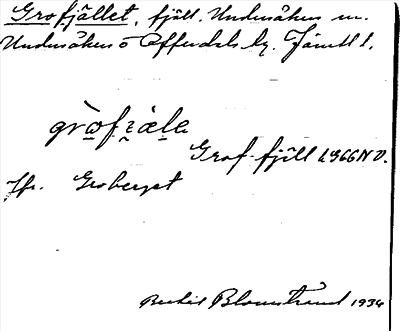 Grofjället, fjäll. Undersåkers sn.
Undersåkers o Offerdals lg. Jämtl l.
Grof-fjäll L 966 NV.
Jfr. Groberget
Bertil Blomstrand 1934